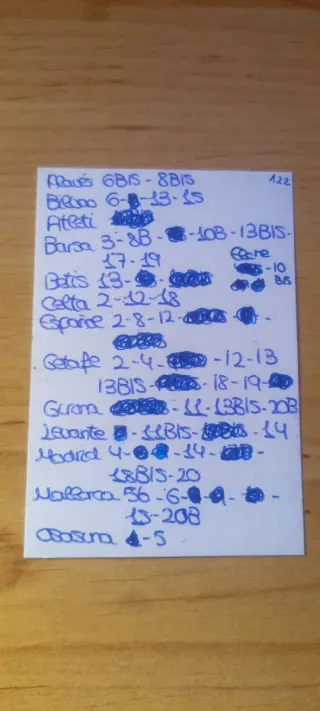 Alavés 6BIS - 8BIS 122
Bilbao 6 - 13 - 15
Atleti
Barsa 3 - 8B - 10B - 13BIS -
17 - 19
Elche
Betis 13 - - 10
BIS
Celta 2 - 12 - 18
Español 2 - 8 - 12 - -
Getafe 2 - 4 - - 12 - 13
13BIS - - 18 - 19 -
Girona - 11 - 13BIS - 20B
Levante - 11BIS - - 14
Madrid 4 - - 14 - -
18BIS - 20
Mallorca 5B - 6 - - - -
15 - 20B
Osasuna - 5